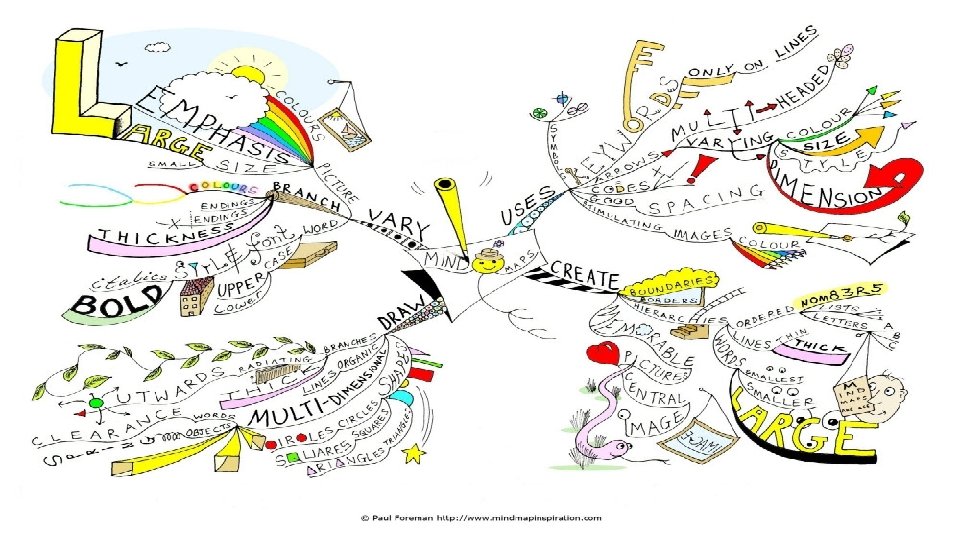 MIND MAPS
VARY
PICTURE
EMPHASIS
COLOURS
LARGE
SMALL SIZE
BRANCH
COLOURS
ENDINGS
ENDINGS
THICKNESS
WORD
font
STYLE
italics
BOLD
CASE
UPPER
Lower
USES
SYMBOLS
KEYWORDS
ONLY ON LINES
ARROWS
MULTI-HEADED
VARYING
COLOUR
SIZE
STYLE
DIMENSION
CODES
GOOD SPACING
STIMULATING IMAGES
COLOUR
CREATE
BOUNDARIES
BORDERS
HIERARCHIES
ORDERED
NOM83R5
LETTERS
A
B
C
LINES
THIN
THICK
WORDS
SMALLEST
SMALLER
LARGE
MIND
MAPS
MEMORABLE
PICTURES
CENTRAL
IMAGE
DRAW
BRANCHES
RADIATING
OUTWARDS
ORGANIC
LINES
THICK
CLEARANCE
WORDS
OBJECTS
MULTI-DIMENSIONAL
SHAPES
CIRCLES, CIRCLES
SQUARES, SQUARES
TRIANGLES
TRIANGLES
© Paul Foreman http://www.mindmapinspiration.com